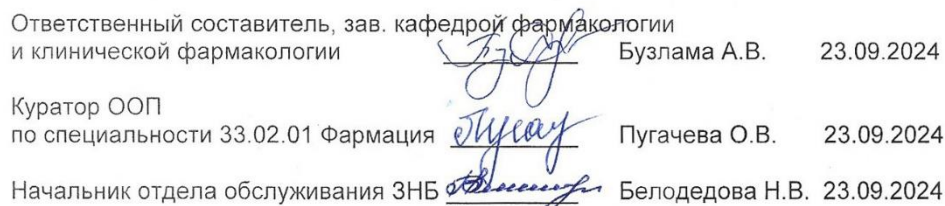 Ответственный составитель, зав. кафедрой фармакологии
и клинической фармакологии Бузлама А.В. 23.09.2024
Куратор ООП
по специальности 33.02.01 Фармация Пугачева О.В. 23.09.2024
Начальник отдела обслуживания ЗНБ Белодедова Н.В. 23.09.2024